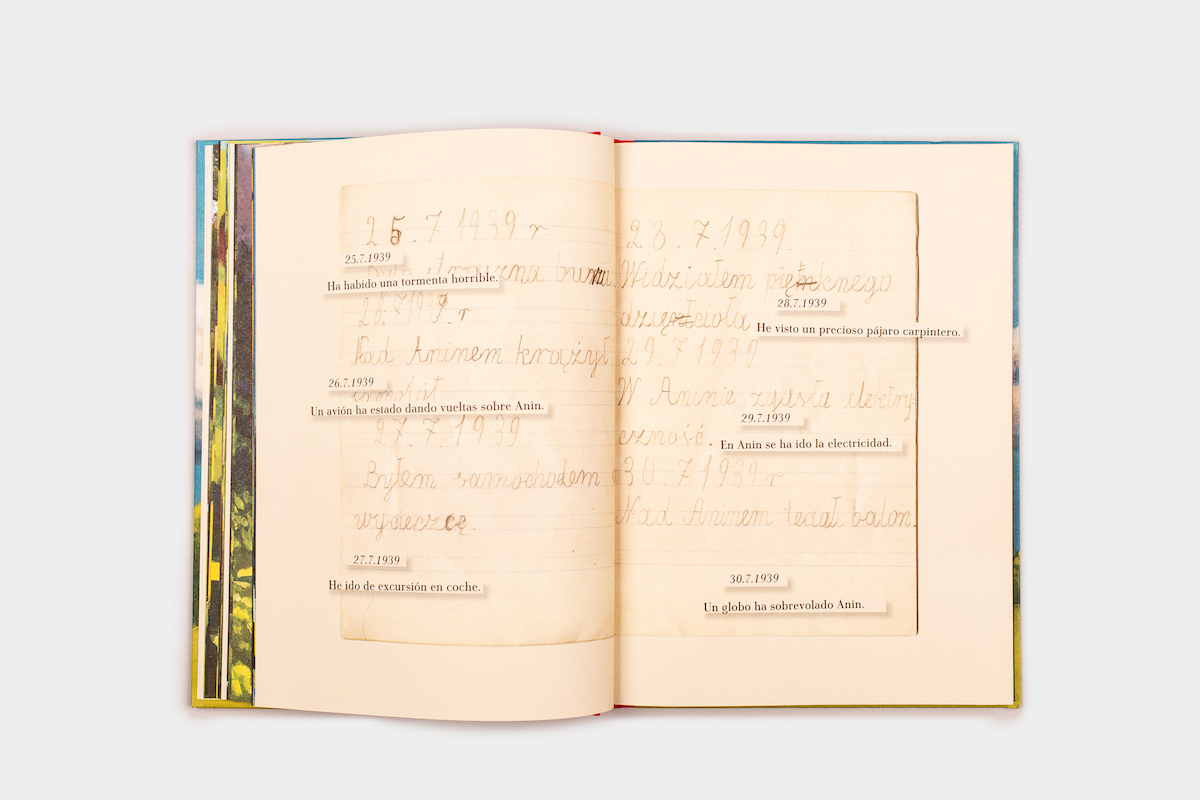 25.7 1939 r
25.7.1939
Była straszna burza
Ha habido una tormenta horrible.
26.7 1939. r
Nad Aninem krążył
26.7.1939
samolot
Un avión ha estado dando vueltas sobre Anin.
27. 7. 1939
Byłem samochodem
wycieczcę.
27.7.1939
He ido de excursión en coche.
28. 7. 1939.
Widziałem pięknego
28.7.1939
dzięcioła
He visto un precioso pájaro carpintero.
29. 7 1939
W Aninie zgasła elektry-
29.7.1939
czność.
En Anin se ha ido la electricidad.
30. 7 1939 r
Nad Aninem leciał balon.
30.7.1939
Un globo ha sobrevolado Anin.